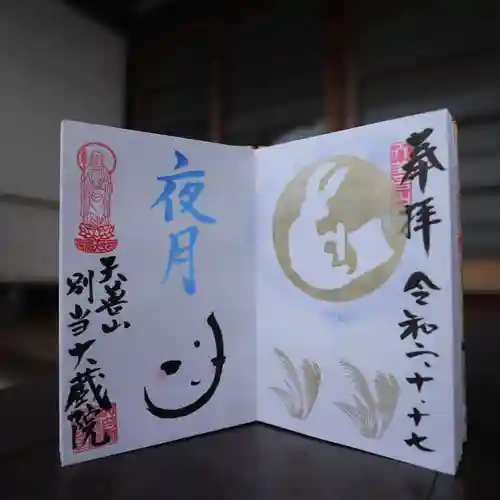 奉拝
令和二・十・十七
夜月
天養山
別当大蔵院